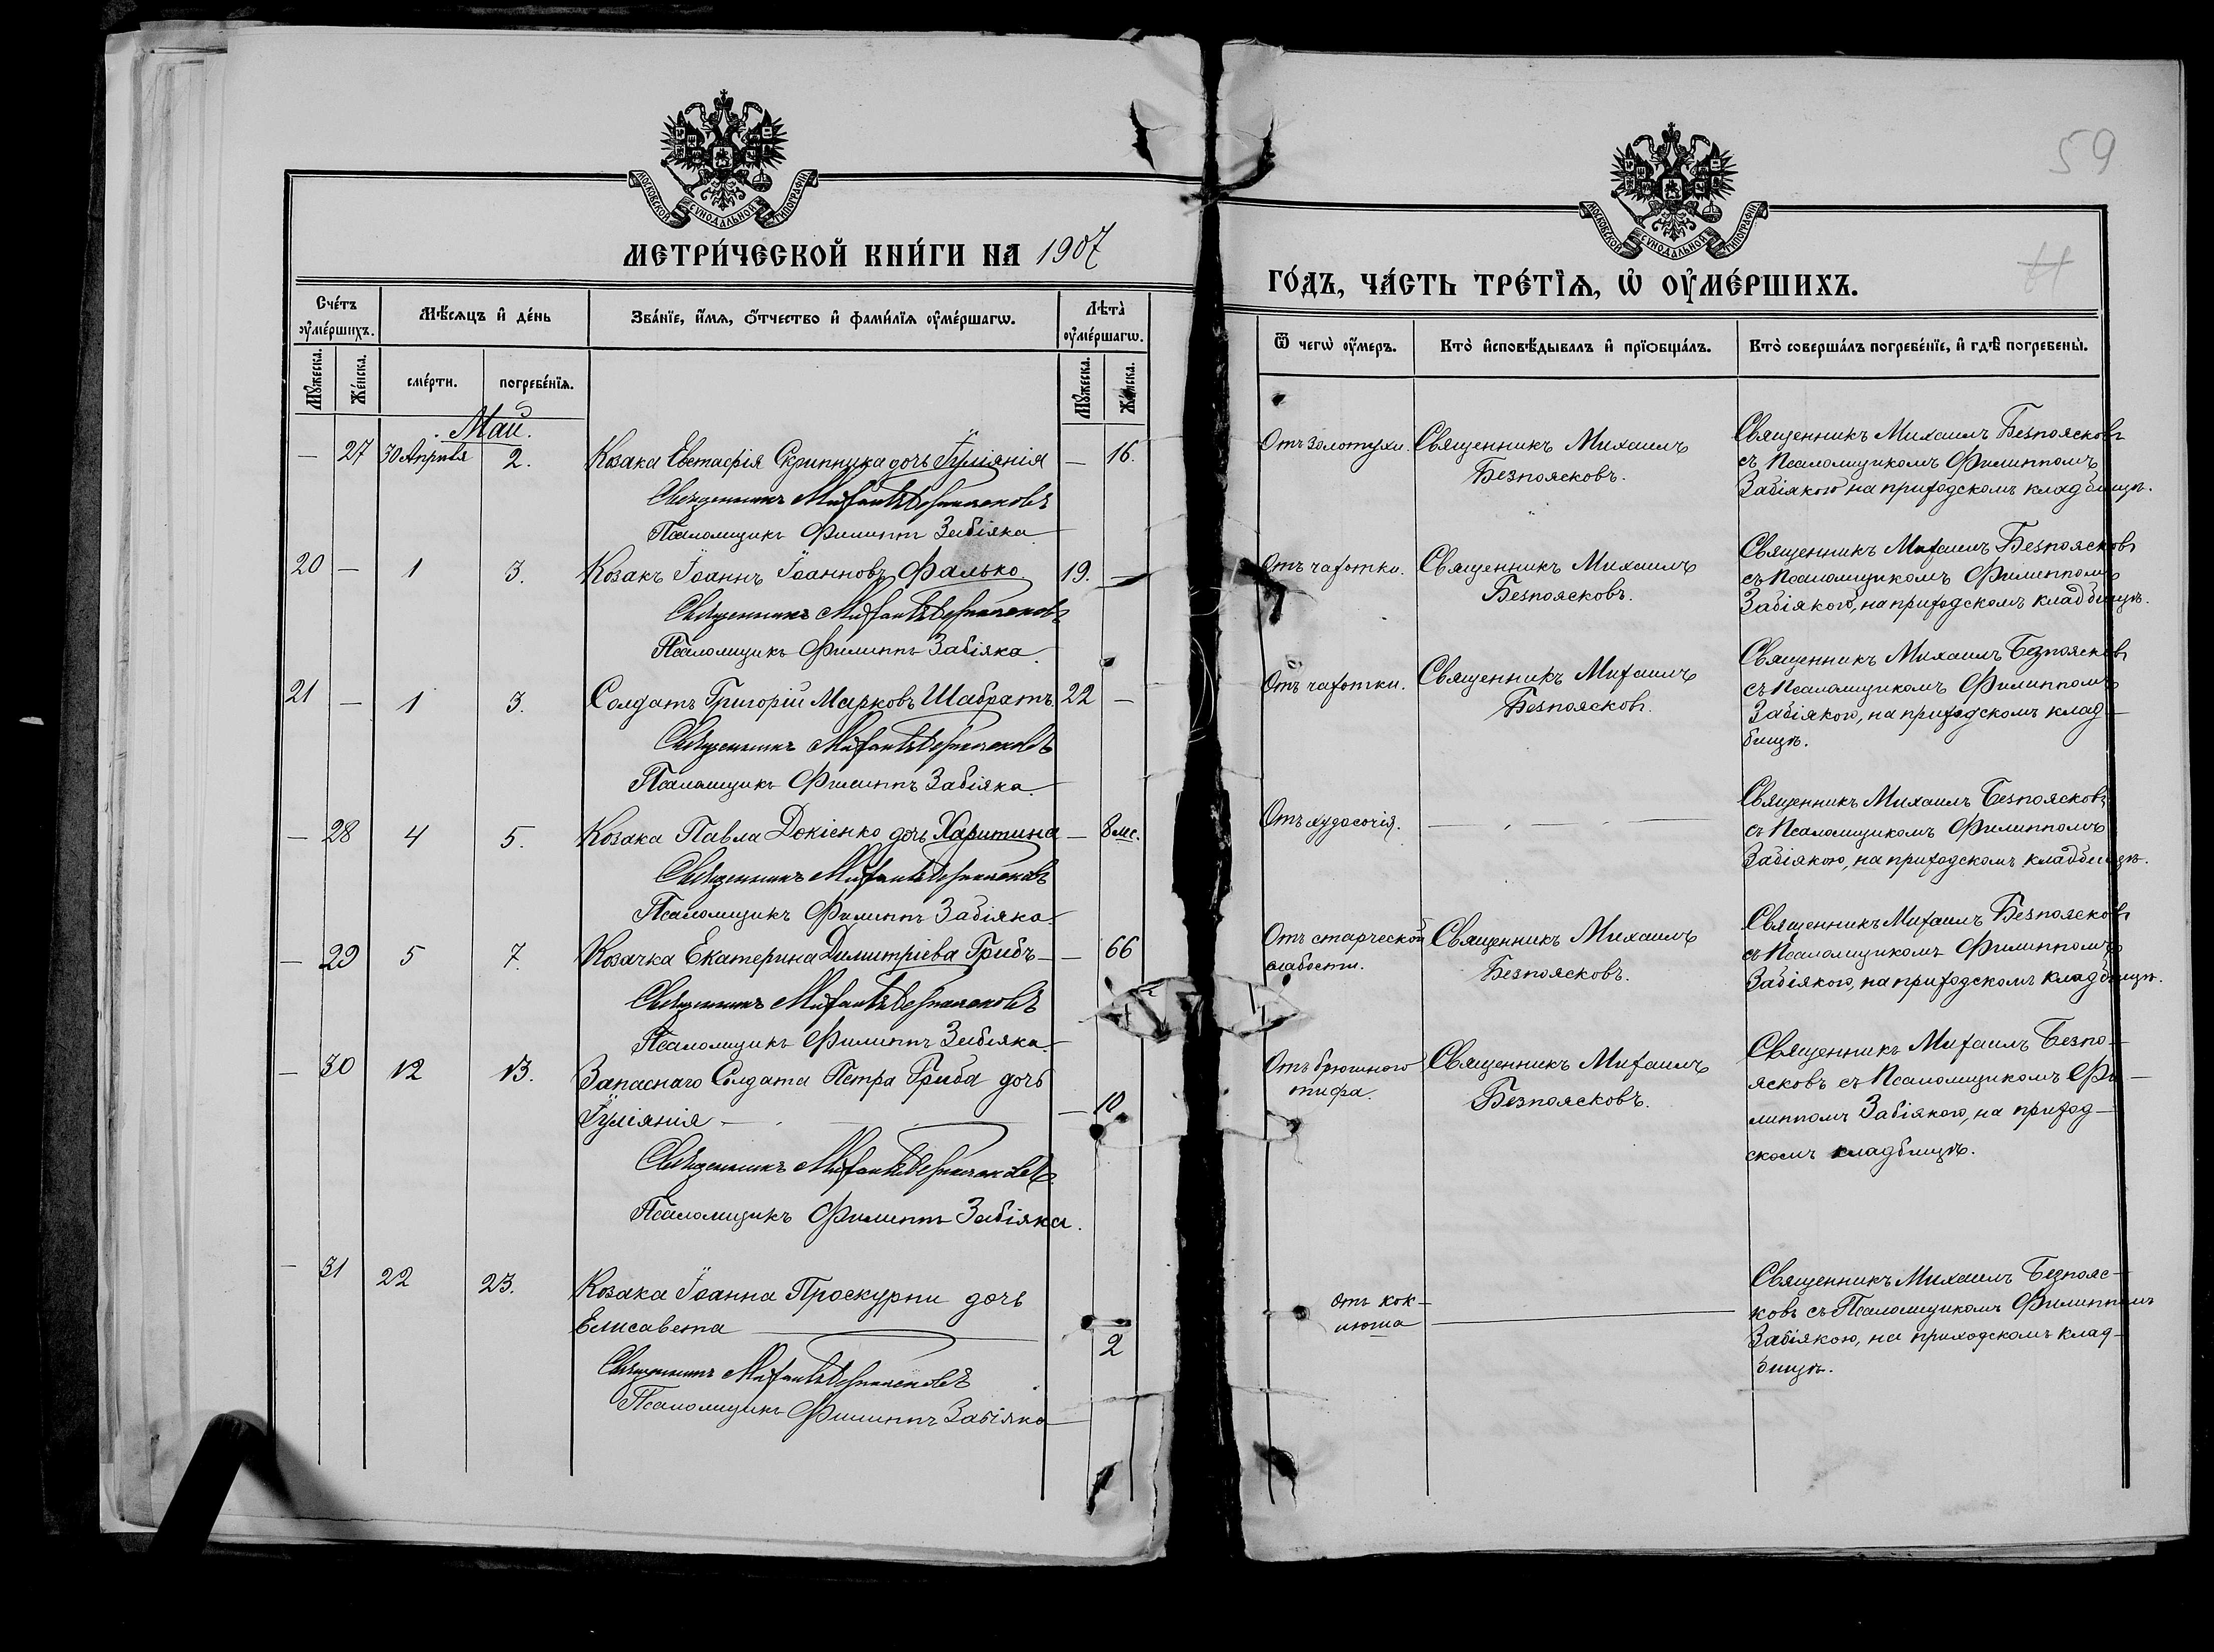 59
МОСКОВСКОЙ СУНОДАЛЬНОЙ ТИПОГРАФІИ
МОСКОВСКОЙ СУНОДАЛЬНОЙ ТИПОГРАФІИ
МЕТРИ́ЧЕСКОЙ КНИ́ГИ НА 1907
ГО́ДЪ, ЧА́СТЬ ТРЕ́ТЇѦ, Ѡ҆ ОУ҆МЕ́РШИХЪ.
Сче́тъ оу҆ме́ршихъ.
Мꙋ́жеска.
Же́нска.
Мѣ́сѧцъ и҆ де́нь
сме́рти.
погребе́нїѧ.
Зва́нїе, и҆́мѧ, ѻ҆́тчество и҆ фами́лїѧ оу҆ме́ршагѡ.
Лѣта̀ оу҆ме́ршагѡ.
Мꙋ́жеска.
Же́нска.
Ѿ чегѡ̀ оу҆́меръ.
Кто̀ и҆сповѣ́дывалъ и҆ прїѻбща́лъ.
Кто̀ соверша́лъ погребе́нїе, и҆ гдѣ̀ погребены̀.
Май.
— 27 30 Апрѣля 2. Козака Евстафія Скрипника дочь Іуліянія — 16.
Священникъ Михаилъ Безпоясковъ
Псаломщикъ Филиппъ Забіяка
Отъ золотухи. Священникъ Михаилъ
Безпоясковъ.
Священникъ Михаилъ Безпоясковъ
съ Псаломщикомъ Филиппомъ
Забіякою на приходскомъ кладбищѣ.
20 — 1 3. Козакъ Іоаннъ Іоанновъ Фалько 19. —
Священникъ Михаилъ Безпоясковъ
Псаломщикъ Филиппъ Забіяка.
Отъ чахотки. Священникъ Михаилъ
Безпоясковъ.
Священникъ Михаилъ Безпоясковъ
съ Псаломщикомъ Филиппомъ
Забіякою, на приходскомъ кладбищѣ.
21 — 1 3. Солдатъ Григорій Марковъ Шабратъ. 22 —
Священникъ Михаилъ Безпоясковъ
Псаломщикъ Филиппъ Забіяка.
Отъ чахотки. Священникъ Михаилъ
Безпоясковъ.
Священникъ Михаилъ Безпоясковъ
съ Псаломщикомъ Филиппомъ
Забіякою, на приходскомъ клад-
бищѣ.
— 28 4 5. Козака Павла Докіенко дочь Харитина — 8 мс.
Священникъ Михаилъ Безпоясковъ
Псаломщикъ Филиппъ Забіяка
Отъ худосочія. — — —
Священникъ Михаилъ Безпоясковъ
съ Псаломщикомъ Филиппомъ
Забіякою, на приходскомъ кладбищѣ.
— 29 5 7. Козачка Екатерина Димитріева Грибъ — — 66
Священникъ Михаилъ Безпоясковъ
Псаломщикъ Филиппъ Забіяка.
Отъ старческой Священникъ Михаилъ
слабости. Безпоясковъ.
Священникъ Михаилъ Безпоясковъ
съ Псаломщикомъ Филиппомъ
Забіякою, на приходскомъ кладбищѣ.
— 30 12 13. Запаснаго Солдата Петра Гриба дочь
Іуліянія — — 10
Священникъ Михаилъ Безпоясковъ
Псаломщикъ Филиппъ Забіяка.
Отъ брюшного Священникъ Михаилъ
тифа. Безпоясковъ.
Священникъ Михаилъ Безпо-
ясковъ съ Псаломщикомъ Фи-
липпомъ Забіякою, на приход-
скомъ кладбищѣ.
— 31 22 23. Козака Іоанна Проскурни дочь
Елисавета — — 2
Священникъ Михаилъ Безпоясковъ
Псаломщикъ Филиппъ Забіяка
Отъ кок-
люша —
Священникъ Михаилъ Безпояс-
ковъ съ Псаломщикомъ Филиппомъ
Забіякою, на приходскомъ клад-
бищѣ.